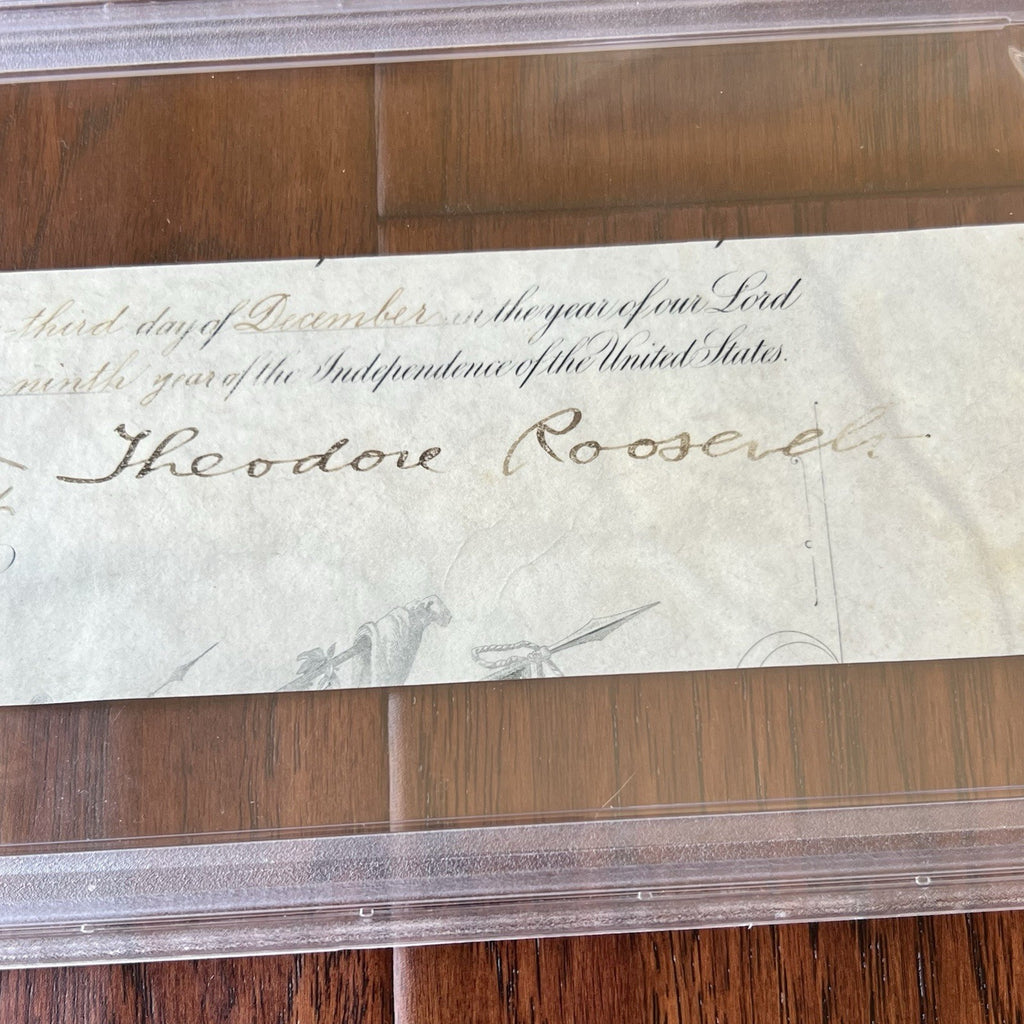 -third day of December in the year of our Lord
ninth year of the Independence of the United States.
Theodore Roosevelt